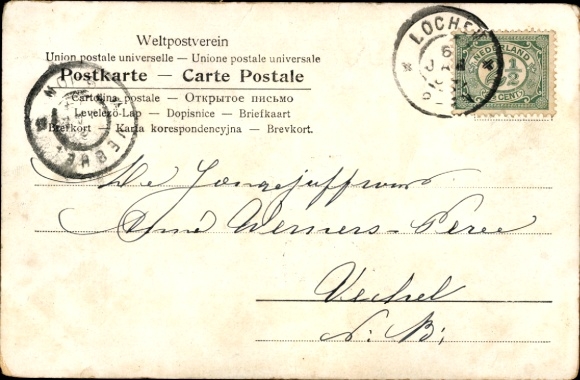 Weltpostverein
Union postale universelle — Unione postale universale
Postkarte — Carte Postale
Cartolina postale — Открытое письмо
Levelező-Lap — Dopisnice — Briefkaart
Brefkort — Karta korespondencyjna — Brevkort.
LOCHEM
NEDERLAND
2½
CENT
De Jongejuffrouw
Werners-Peree
Vechel
N. B.